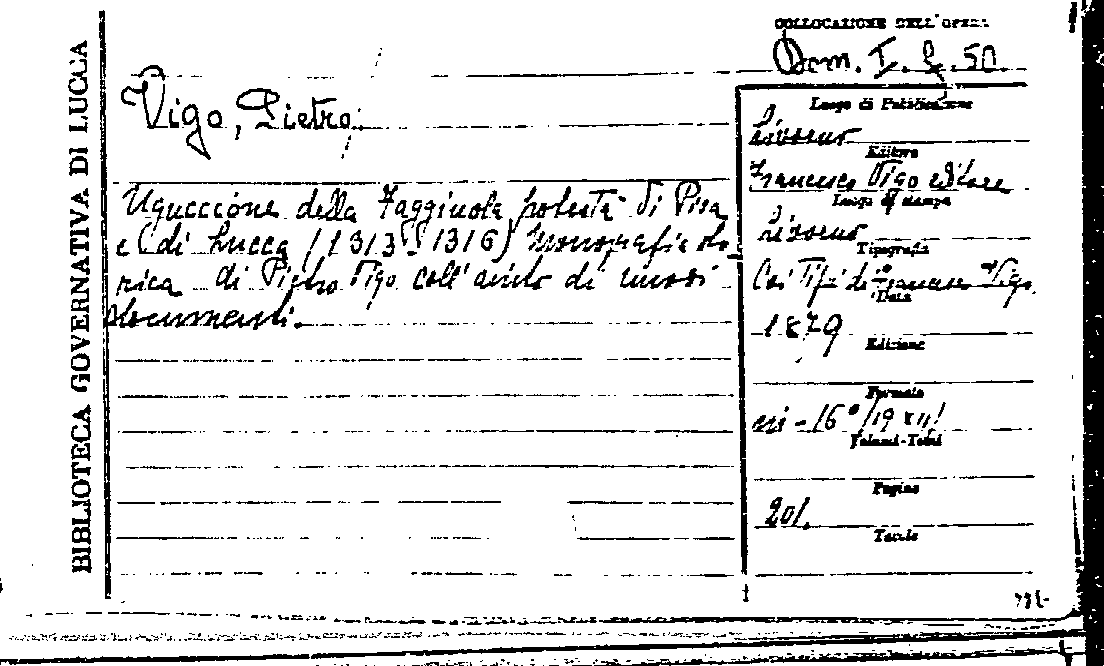 BIBLIOTECA GOVERNATIVA DI LUCCA
COLLOCAZIONE DELL'OPERA
Dom. I. 50.
Vigo, Pietro.
Uguccione della Faggiuola potestà di Pisa
e di Lucca (1313-1316) Monografia sto
rica di Pietro Vigo coll'aiuto di nuovi
documenti.
Luogo di Pubblicazione
Livorno
Editore
Francesco Vigo editore
Luogo di stampa
Livorno
Tipografia
Coi Tipi di Francesco Vigo
Data
1879
Edizione
Formato
in-16°
Volumi-Tomi
Pagine
201.
Tavole